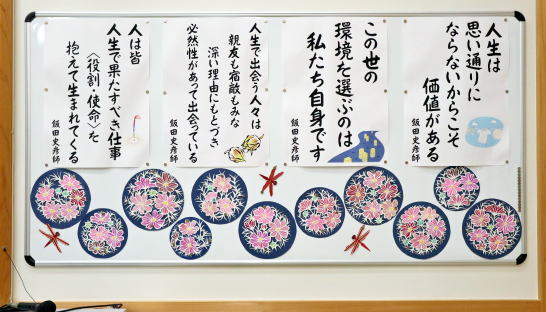 人生は
思い通りに
ならないからこそ
価値がある
飯田史彦師
この世の
環境を選ぶのは
私たち自身です
飯田史彦師
人生で出会う人々は
親友も宿敵もみな
深い理由にもとづき
必然性があって出会っている
飯田史彦師
人は皆
人生で果たすべき仕事
〈役割・使命〉を
抱えて生まれてくる
飯田史彦師